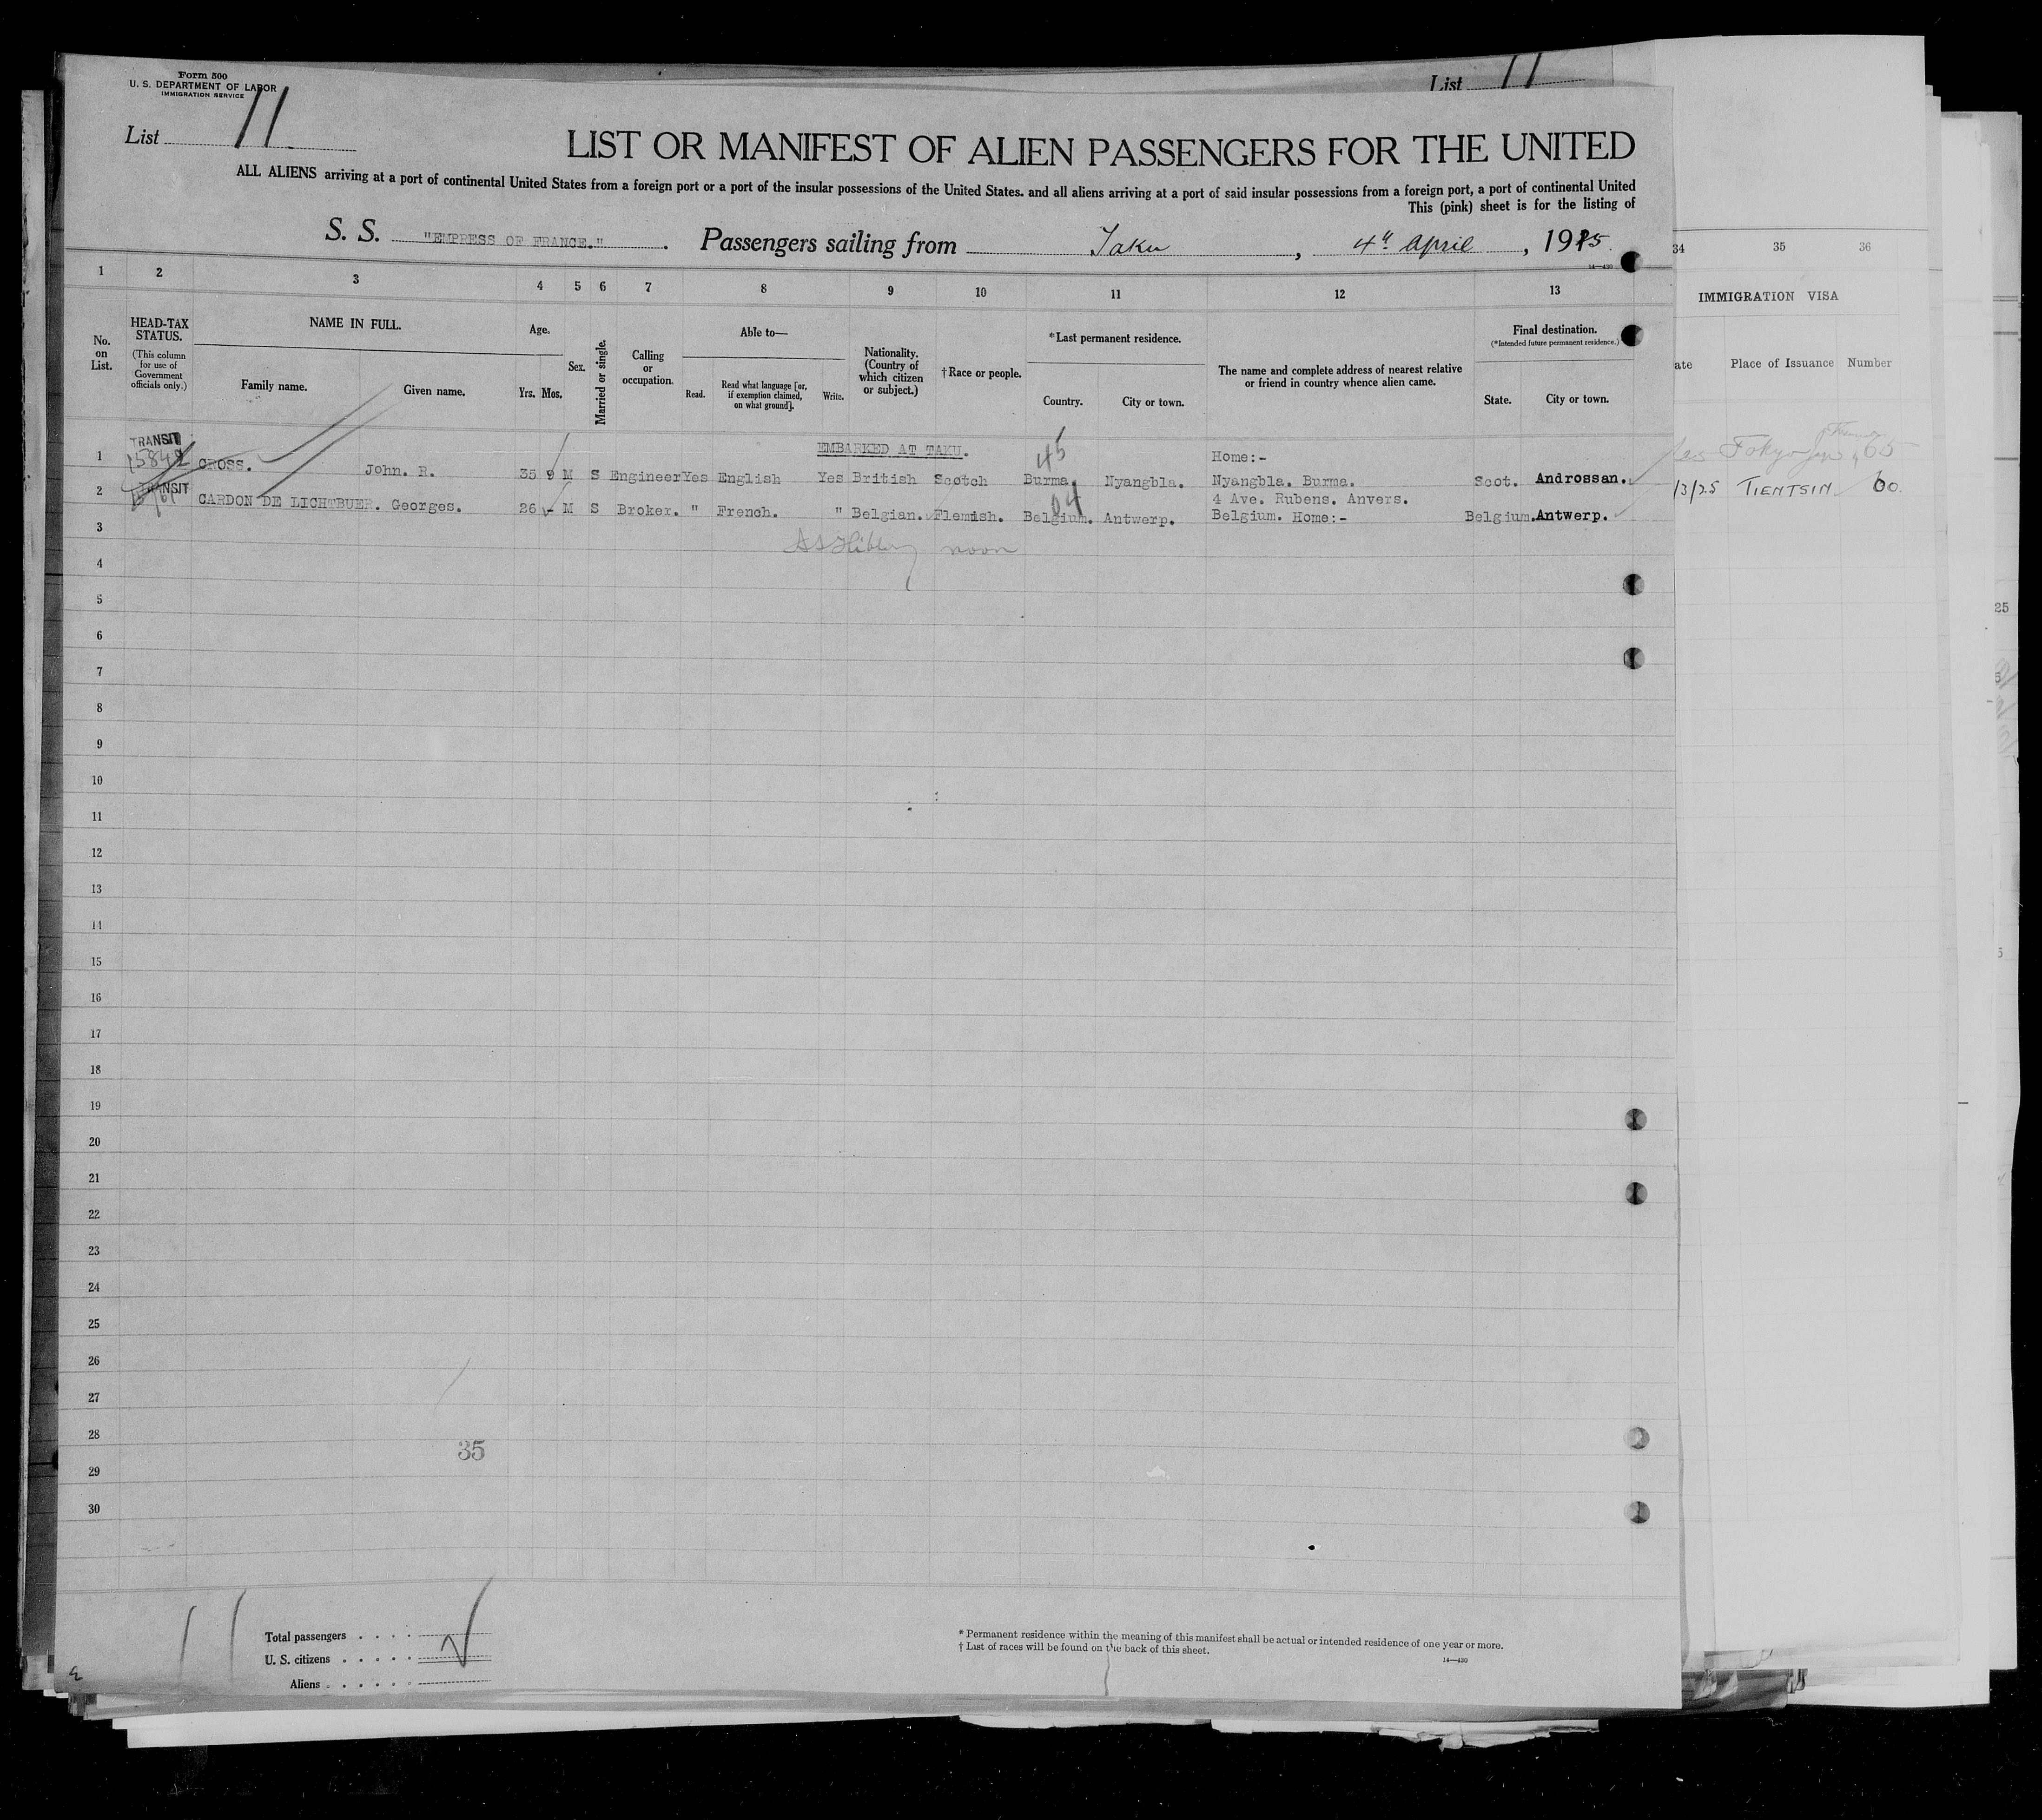 Form 500
U. S. DEPARTMENT OF LABOR
IMMIGRATION SERVICE
List 11
List 11
LIST OR MANIFEST OF ALIEN PASSENGERS FOR THE UNITED
ALL ALIENS arriving at a port of continental United States from a foreign port or a port of the insular possessions of the United States. and all aliens arriving at a port of said insular possessions from a foreign port, a port of continental United
This (pink) sheet is for the listing of
S. S. "EMPRESS OF FRANCE." Passengers sailing from Taku, 4th April, 1925.
14—430
1 2 3 4 5 6 7 8 9 10 11 12 13 34 35 36
No. on List.
HEAD-TAX STATUS.
(This column for use of Government officials only.)
NAME IN FULL.
Family name. Given name.
Age.
Yrs. Mos.
Sex.
Married or single.
Calling or occupation.
Able to—
Read. Read what language [or, if exemption claimed, on what ground]. Write.
Nationality. (Country of which citizen or subject.)
†Race or people.
*Last permanent residence.
Country. City or town.
The name and complete address of nearest relative or friend in country whence alien came.
Final destination.
(*Intended future permanent residence.)
State. City or town.
IMMIGRATION VISA
ate Place of Issuance Number
EMBARKED AT TAKU.
1 TRANSIT 15842 CROSS. John. R. 35 9 M S Engineer Yes English Yes British Scotch 45 Burma. Nyangbla. Home:- Nyangbla. Burma. Scot. Androssan. Tokyo 65
2 TRANSIT CARDON DE LICHTBUER. Georges. 26 - M S Broker. " French. " Belgian. Flemish. 04 Belgium. Antwerp. 4 Ave. Rubens. Anvers. Belgium. Home:- Belgium. Antwerp. /3/25 TIENTSIN 60.
3 noon
4
5
6
7
8
9
10
11
12
13
14
15
16
17
18
19
20
21
22
23
24
25
26
27
28
35
29
30
11
Total passengers
U. S. citizens
Aliens
* Permanent residence within the meaning of this manifest shall be actual or intended residence of one year or more.
† List of races will be found on the back of this sheet.
14—430